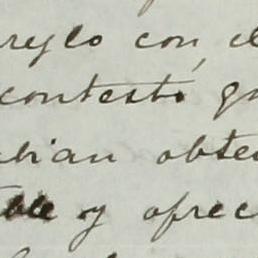 reglo con el
contestó qu
abian obte
ble y ofrec